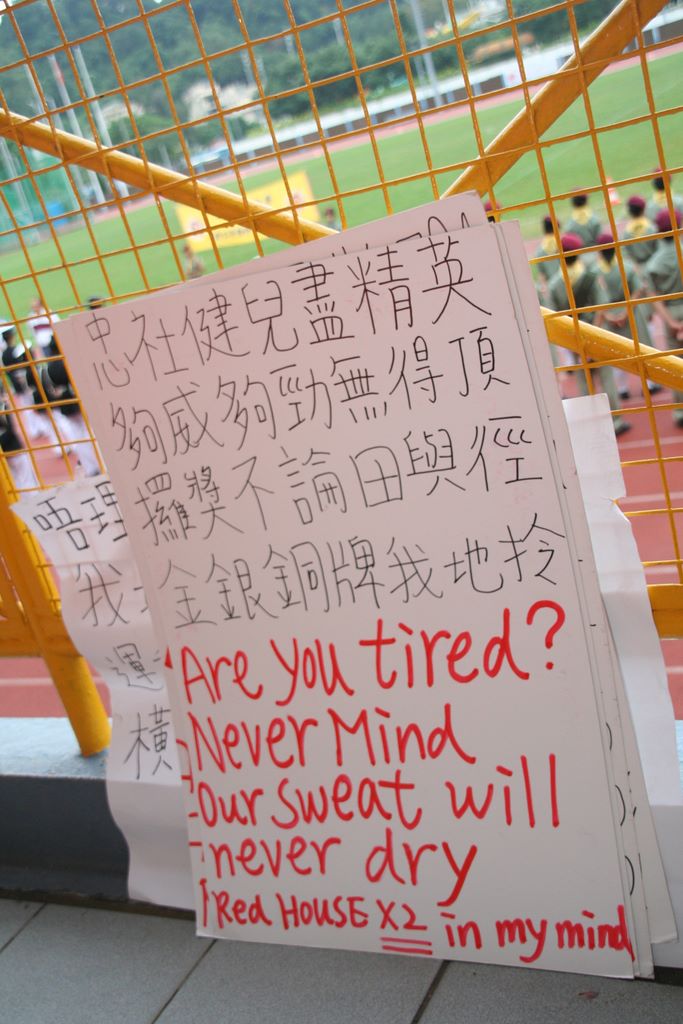 忠社健兒盡精英
夠威夠勁無得頂
攞獎不論田與徑
金銀銅牌我地拎
Are you tired?
Never Mind
Our sweat will
never dry
Red HOUSE X2 in my mind
唔理
我
運
橫